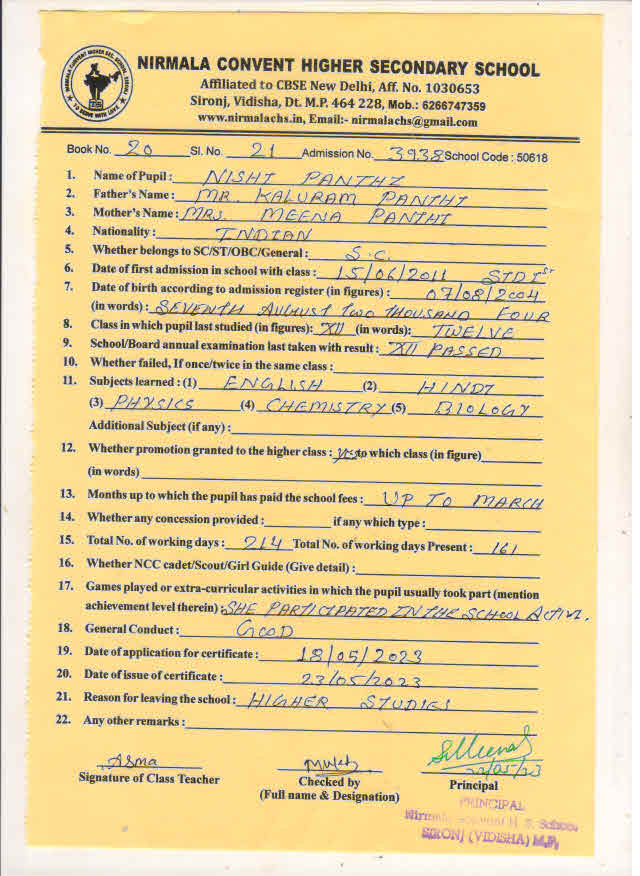 NIRMALA CONVENT HIGHER SECONDARY SCHOOL
Affiliated to CBSE New Delhi, Aff. No. 1030653
Sironj, Vidisha, Dt. M.P. 464 228, Mob.: 6266747359
www.nirmalachs.in, Email:- nirmalachs@gmail.com
Book No. 20 Sl. No. 21 Admission No. 3938 School Code : 50618
1. Name of Pupil : NISHI PANTHI
2. Father's Name : MR. KALURAM PANTHI
3. Mother's Name : MRS. MEENA PANTHI
4. Nationality : INDIAN
5. Whether belongs to SC/ST/OBC/General : S.C.
6. Date of first admission in school with class : 15/06/2011 STD I st
7. Date of birth according to admission register (in figures) : 07/08/2004
(in words) : SEVENTH AUGUST TWO THOUSAND FOUR
8. Class in which pupil last studied (in figures): XII (in words): TWELVE
9. School/Board annual examination last taken with result : XII PASSED
10. Whether failed, If once/twice in the same class :
11. Subjects learned : (1) ENGLISH (2) HINDI
(3) PHYSICS (4) CHEMISTRY (5) BIOLOGY
Additional Subject (if any) :
12. Whether promotion granted to the higher class : yes to which class (in figure)
(in words)
13. Months up to which the pupil has paid the school fees : UP TO MARCH
14. Whether any concession provided : if any which type :
15. Total No. of working days : 214 Total No. of working days Present : 161
16. Whether NCC cadet/Scout/Girl Guide (Give detail) :
17. Games played or extra-curricular activities in which the pupil usually took part (mention
achievement level therein) : SHE PARTICIPATED IN THE SCHOOL ACTIVI.
18. General Conduct : GOOD
19. Date of application for certificate : 18/05/2023
20. Date of issue of certificate : 23/05/2023
21. Reason for leaving the school : HIGHER STUDIES
22. Any other remarks :
Asma
Signature of Class Teacher Checked by Principal
(Full name & Designation)
PRINCIPAL
Nirmala Convent H. S. School
SIRONJ (VIDISHA) M.P.